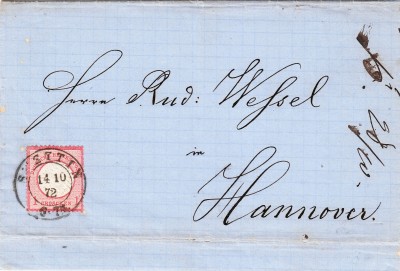 Herrn Rud: Wessel
in
Hannover.
STETTIN
14 10
72